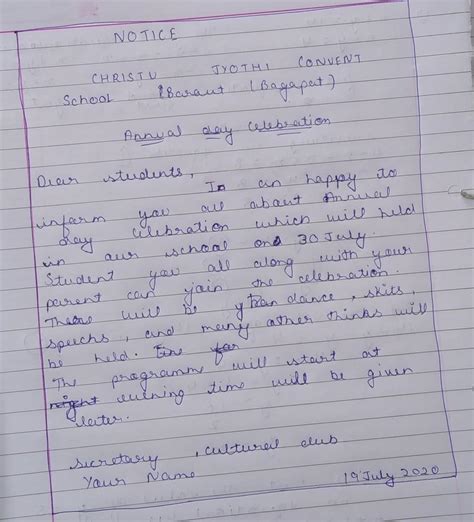 NOTICE
CHRISTU JYOTHI CONVENT
School Baraut (Bagapat)
Annual day Celebration
Dear students,
In an happy to
inform you all about Annual
day celebration which will held
in our school on 30 July.
Student you all along with your
parent can join the celebration.
There will be dance, skits,
speechs, and many other thinks will
be held.
The programme will start at
night evening time will be given
later.
secretary , cultural club
Your Name
19 July 2020